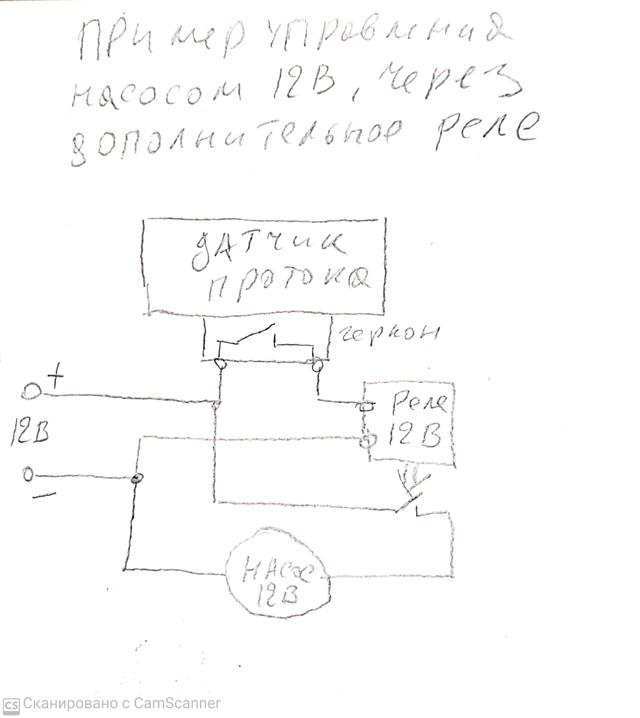 Пример управления
насосом 12В, через
дополнительное реле
ДАТЧИК
ПРОТОКА
геркон
+
Реле
12В
12В
–
НАСОС
12В
CS Сканировано с CamScanner